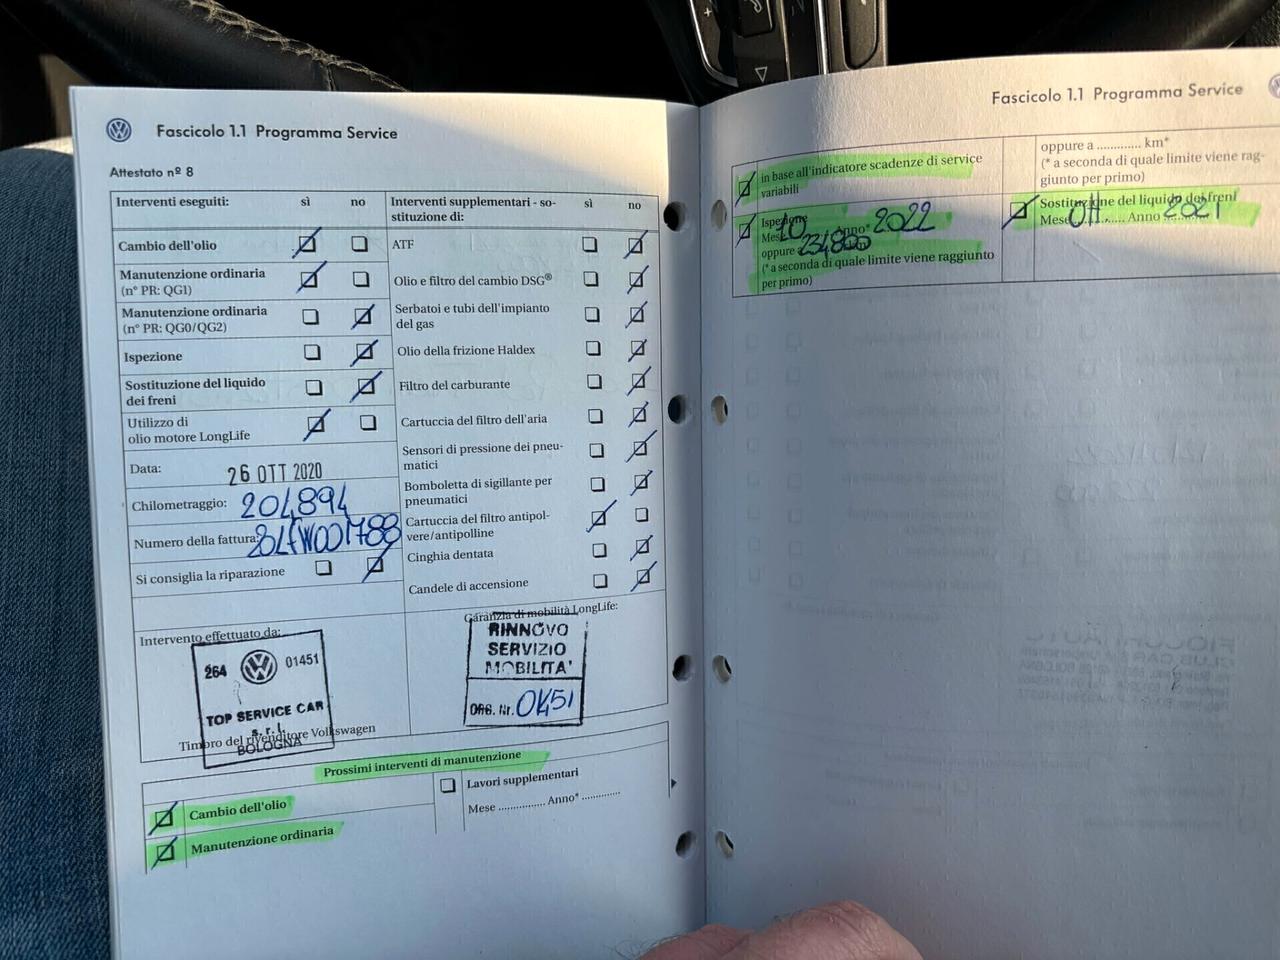 Fascicolo 1.1 Programma Service
Attestato nº 8
Interventi eseguiti: sì no
Cambio dell'olio
Manutenzione ordinaria
(nº PR: QG1)
Manutenzione ordinaria
(nº PR: QG0/QG2)
Ispezione
Sostituzione del liquido
dei freni
Utilizzo di
olio motore LongLife
Data: 26 OTT 2020
Chilometraggio: 204894
Numero della fattura:
Si consiglia la riparazione
Interventi supplementari - so-
stituzione di: sì no
ATF
Olio e filtro del cambio DSG®
Serbatoi e tubi dell'impianto
del gas
Olio della frizione Haldex
Filtro del carburante
Cartuccia del filtro dell'aria
Sensori di pressione dei pneu-
matici
Bomboletta di sigillante per
pneumatici
Cartuccia del filtro antipol-
vere/antipolline
Cinghia dentata
Candele di accensione
Intervento effettuato da:
264 01451
TOP SERVICE CAR
s.r.l.
BOLOGNA
Timbro del rivenditore Volkswagen
Garanzia di mobilità LongLife:
RINNOVO
SERVIZIO
MOBILITA'
ORG. Nr.
Prossimi interventi di manutenzione
Cambio dell'olio
Manutenzione ordinaria
Lavori supplementari
Mese ................ Anno* .............
Fascicolo 1.1 Programma Service
in base all'indicatore scadenze di service
variabili
Ispezione
Mese 10 Anno* 2022
oppure a 234800 km
(* a seconda di quale limite viene raggiunto
per primo)
oppure a ............. km*
(* a seconda di quale limite viene rag-
giunto per primo)
Sostituzione del liquido dei freni
Mese Ott Anno 2021